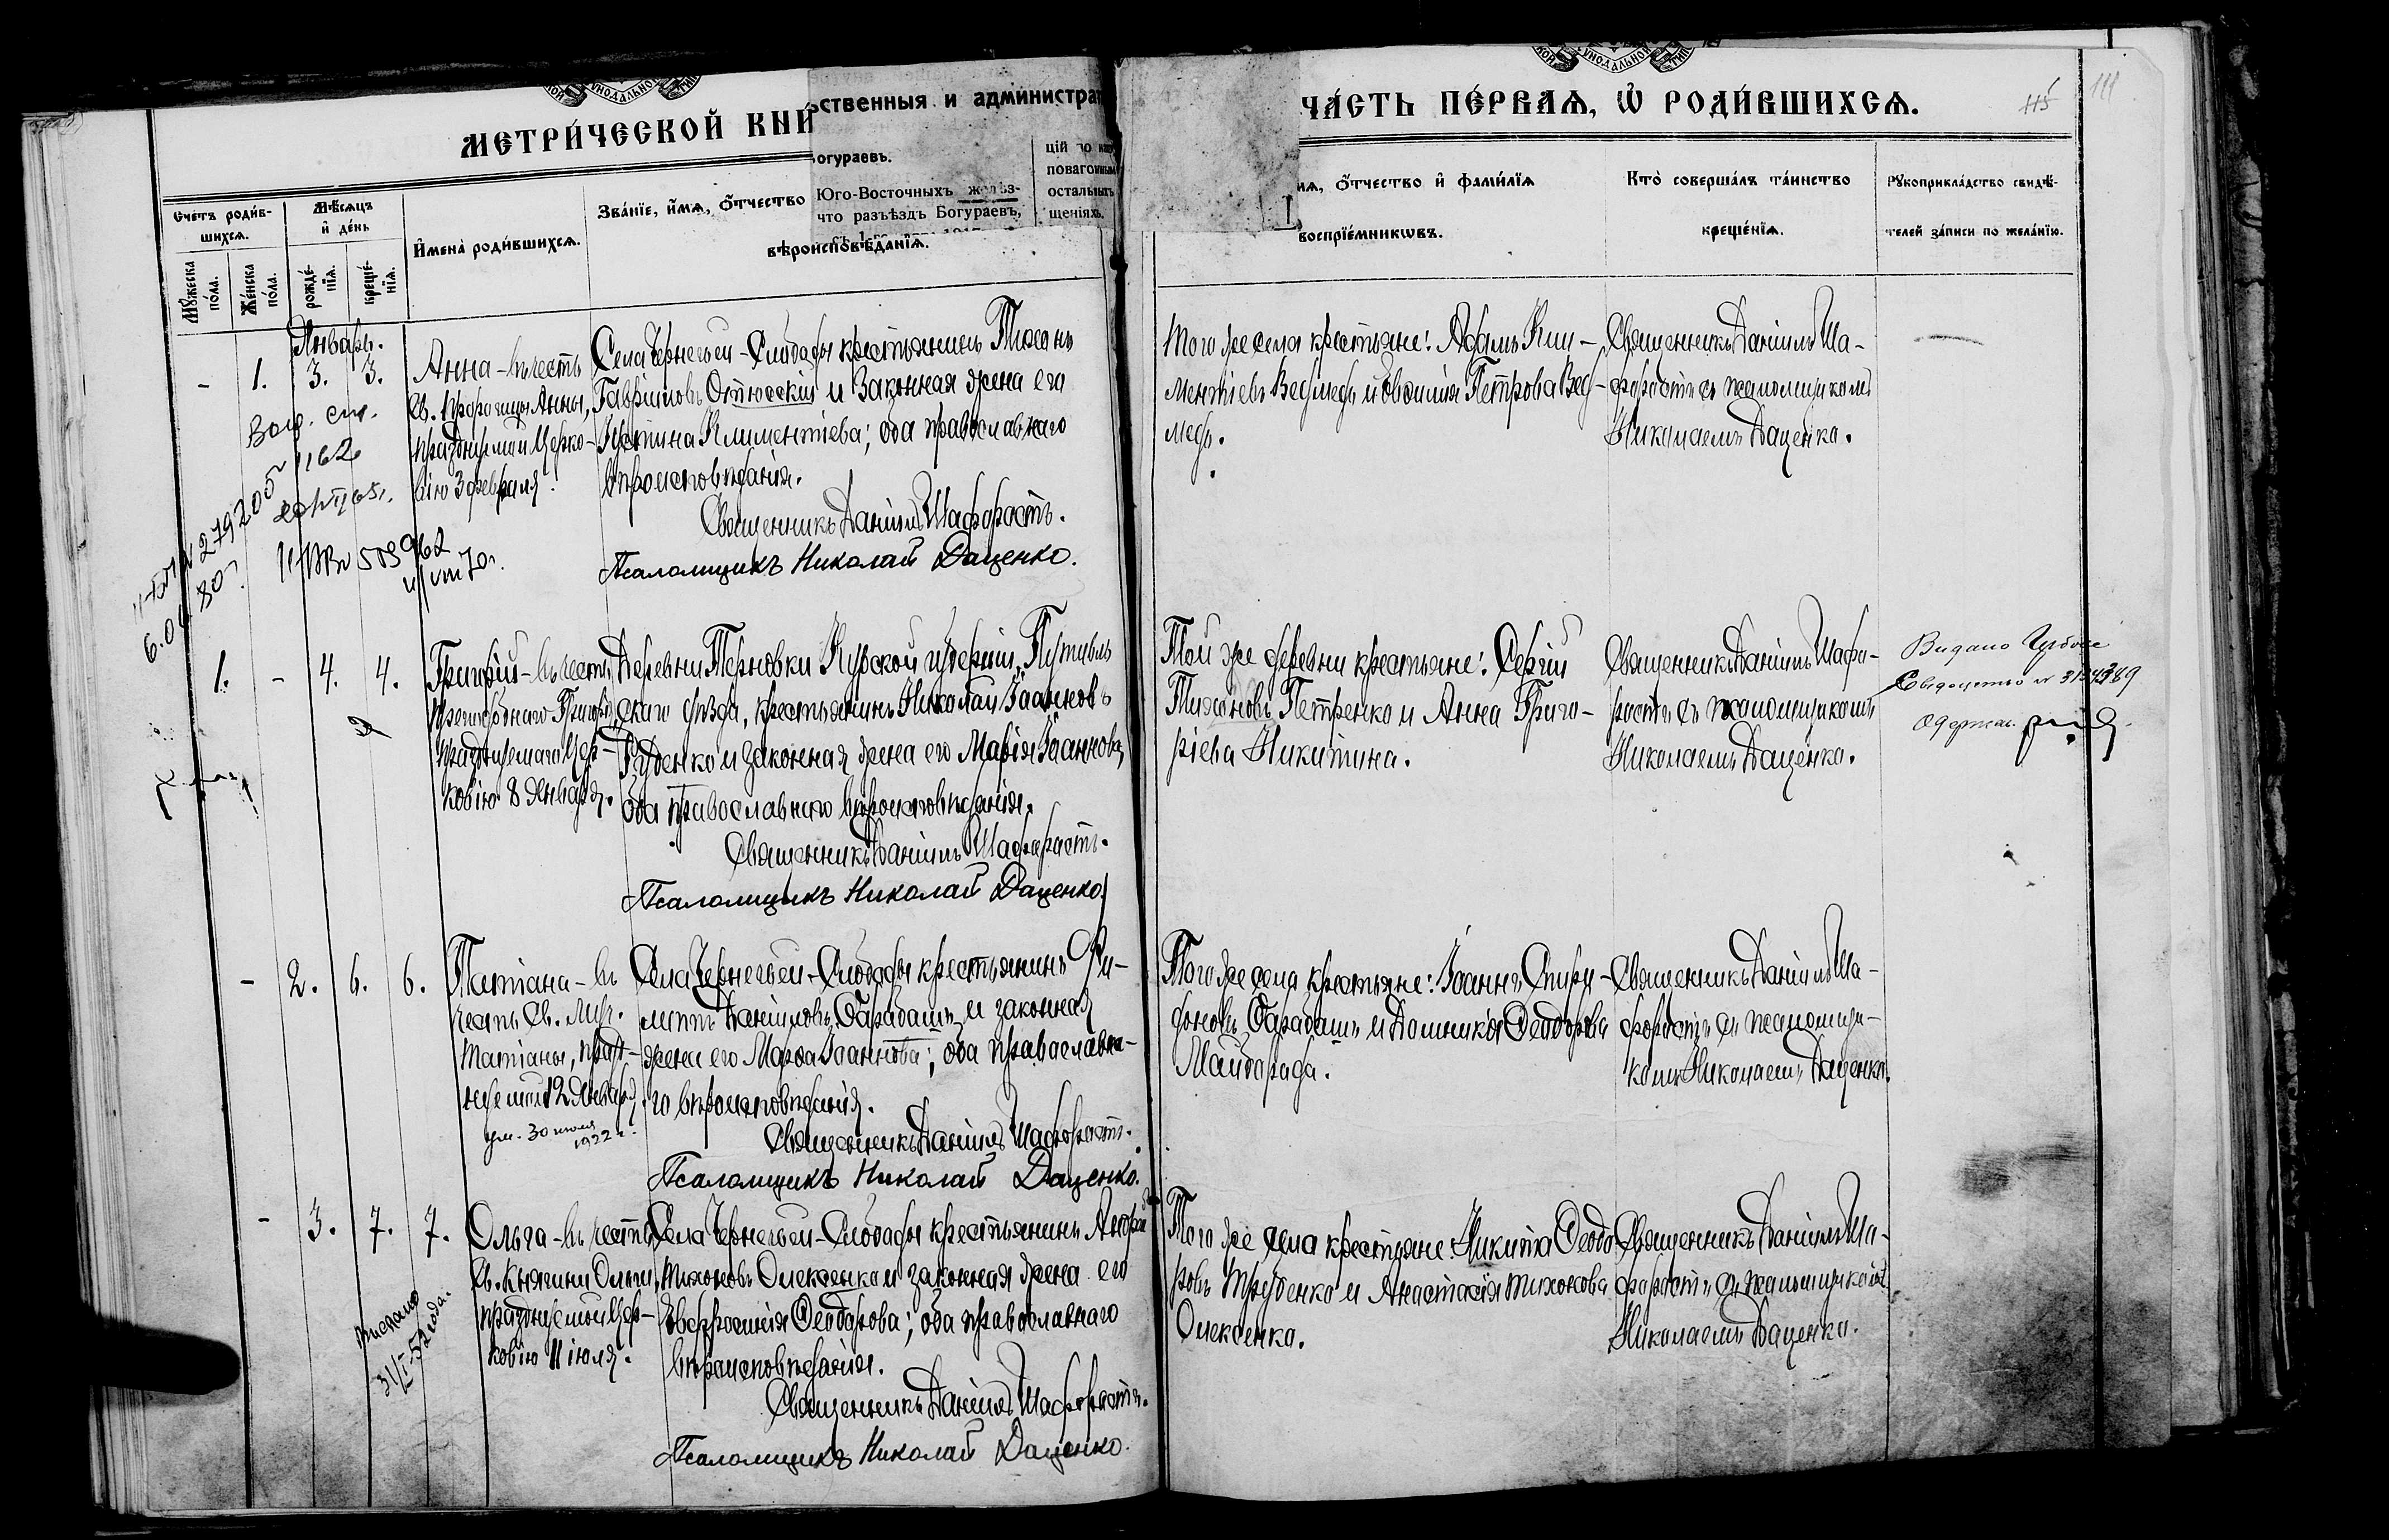 МЕТРИ́ЧЕСКОЙ КНИ́
ственныя и администрат
огураевъ.
Юго-Восточныхъ желѣз-
что разъѣздъ Богураевъ,
цій по
повагонным
остальныхъ
щеніяхъ.
ЧА́СТЬ ПЕ́РВАЯ, Ѽ РОДИ́ВШИХСЯ.
115
111
Счетъ роди́в-
шихся.
Мѣсяцъ
и҆ де́нь
Мꙋжеска по́ла.
Же́нска по́ла.
рожде́-нїя.
креще́-нїя.
И҆мена̀ роди́вшихся.
Зва́нїе, и҆́мя, ѻ҆́тчество
вѣроисповѣ́данїя.
мя, ѻ҆́тчество и҆ фами́лїя
воспрїе́мникѡвъ.
Кто̀ соверша́лъ та́инство
креще́нїя.
Рꙋкоприкла́дство свидѣ́-
телей за́писи по жела́нїю.
Январь.
- 1. 3. 3.
Анна - въ честь
Св. Пророчицы Анны,
празднуемой Церко-
вію 3 февраля.
Села Чернечьей-Слободы крестьянинъ Тихонъ
Гавріиловъ и законная жена его
Іустина Климентіева; оба православнаго
вѣроисповѣданія.
Священникъ Даніилъ Шафорастъ.
Псаломщикъ Николай Даценко.
Того же села крестьяне: Адамъ Кли-
ментіевъ Ведмедь и Евфимія Петрова Вед-
медь.
Священникъ Даніилъ Ша-
форастъ съ псаломщикомъ
Николаемъ Даценко.
1162
279205
509962
1. - 4. 4.
Григорій - въ честь
преподобнаго Григорія
празднуемаго Цер-
ковію 8 Января.
Деревни Терновки Курской губерніи, Путивль
скаго уѣзда, крестьянинъ Николай Іоанновъ
Руденко и законная жена его Марія Іоаннова,
оба православнаго вѣроисповѣданія.
Священникъ Даніилъ Шафорастъ.
Псаломщикъ Николай Даценко.
Той же деревни крестьяне: Сергій
Тихоновъ Петренко и Анна Григо-
ріева Никитина.
Священникъ Даніилъ Шафо-
растъ съ псаломщикомъ
Николаемъ Даценко.
Видано
Свідоцтво №
Одержал
- 2. 6. 6.
Татіана - въ
честь Св. Муч.
Татіаны, празд-
нуемой 12 Января,
ум. 30 июля
1922 г.
Села Чернечьей-Слободы крестьянинъ Фи-
липпъ Данииловъ Барабашъ и законная
жена его Марѳа Іоаннова; оба православна-
го вѣроисповѣданія.
Священникъ Даніилъ Шафорастъ.
Псаломщикъ Николай Даценко.
Того же села крестьяне: Іоаннъ Спири-
доновъ Барабашъ и Домникія Ѳеодорова
Майборода.
Священникъ Даніилъ Ша-
форастъ съ псаломщи-
комъ Николаемъ Даценко.
- 3. 7. 7.
Ольга - въ честь
Св. Княгини Ольги,
празднуемой Цер-
ковію 11 іюля.
31/I-52 года.
Села Чернечьей-Слободы крестьянинъ Андрей
Тихоновъ Олексенко и законная жена его
Евфросинія Ѳеодорова; оба православнаго
вѣроисповѣданія.
Священникъ Даніилъ Шафорастъ.
Псаломщикъ Николай Даценко.
Того же села крестьяне: Никита Ѳеодо
ровъ Труденко и Анастасія Тихонова
Олексенко.
Священникъ Даніилъ Ша-
форастъ съ псаломщикомъ
Николаемъ Даценко.